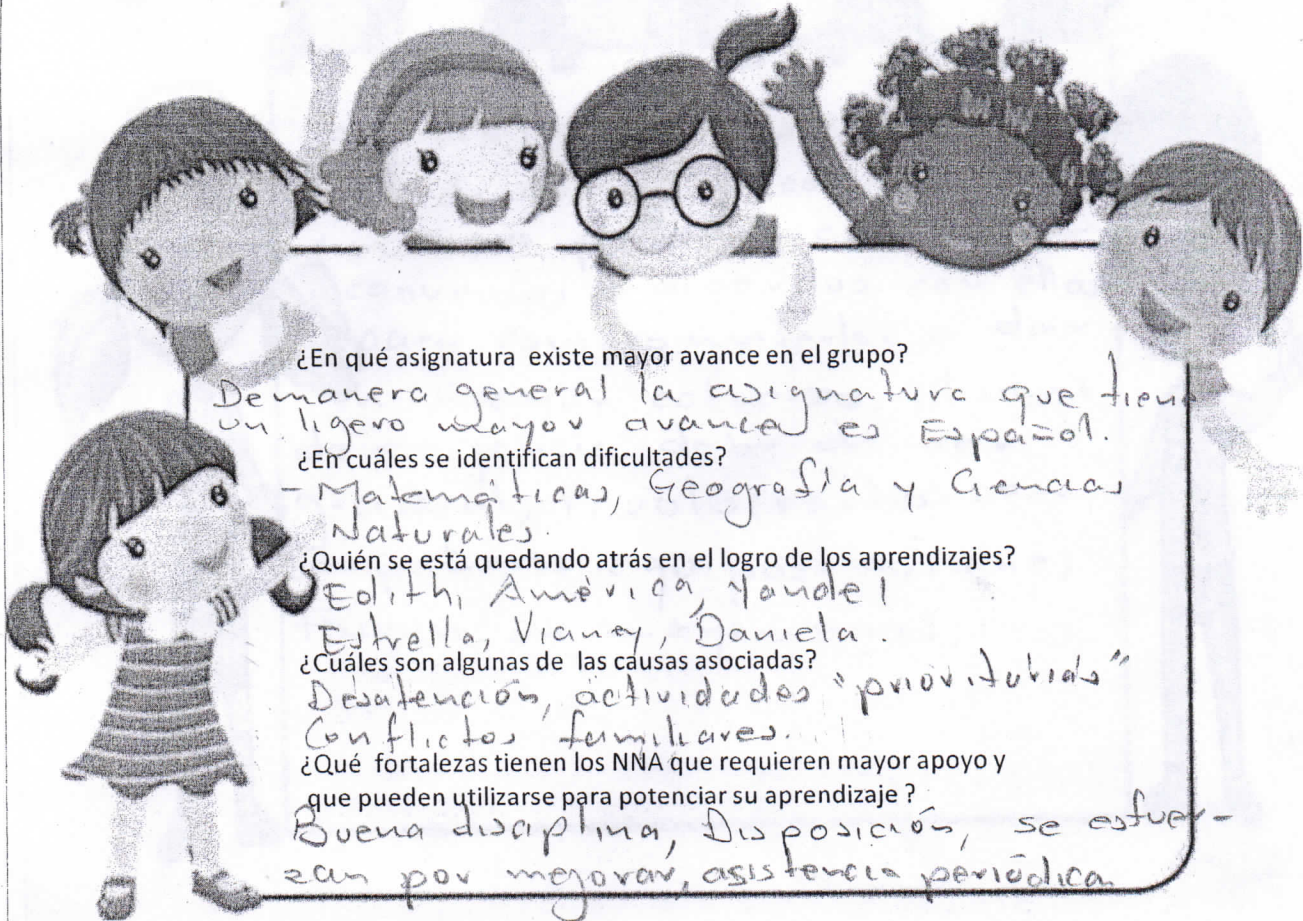 ¿En qué asignatura existe mayor avance en el grupo?
De manera general la asignatura que tiene
un ligero mayor avance es Español.
¿En cuáles se identifican dificultades?
- Matemáticas, Geografía y Ciencias
Naturales.
¿Quién se está quedando atrás en el logro de los aprendizajes?
Edith, América, Yandel
Estrella, Vianey, Daniela.
¿Cuáles son algunas de las causas asociadas?
Desatención, actividades "prioritarias"
Conflictos familiares.
¿Qué fortalezas tienen los NNA que requieren mayor apoyo y
que pueden utilizarse para potenciar su aprendizaje ?
Buena disciplina, Disposición, se esfuer-
zan por mejorar, asistencia periódica